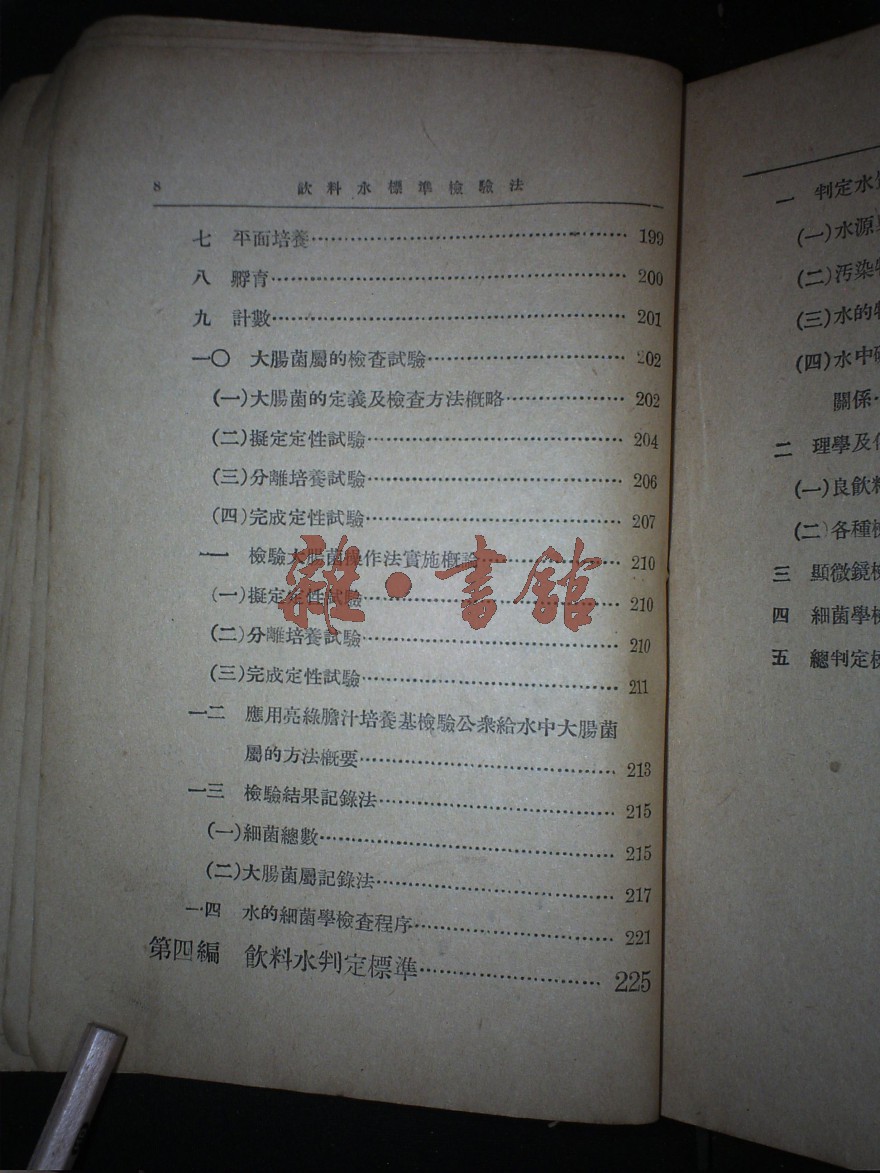 8 飲料水標準檢驗法
七 平面培養 199
八 孵育 200
九 計數 201
一〇 大腸菌屬的檢查試驗 202
(一)大腸菌的定義及檢查方法概略 202
(二)擬定定性試驗 204
(三)分離培養試驗 206
(四)完成定性試驗 207
一一 檢驗大腸菌操作法實施概論 210
(一)擬定定性試驗 210
(二)分離培養試驗 210
(三)完成定性試驗 211
一二 應用亮綠膽汁培養基檢驗公衆給水中大腸菌
屬的方法概要 213
一三 檢驗結果記錄法 215
(一)細菌總數 215
(二)大腸菌屬記錄法 217
一四 水的細菌學檢查程序 221
第四編 飲料水判定標準 225
雜·書館
一 判定水
(一)水源
(二)污染
(三)水的
(四)水中
關係
二 理學及
(一)良飲料
(二)各種
三 顯微鏡
四 細菌學
五 總判定